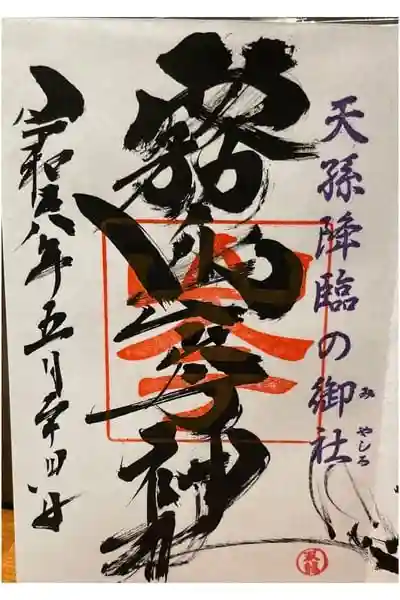 天孫降臨の御社
み やしろ
霧島岑神
令和八年五月四日